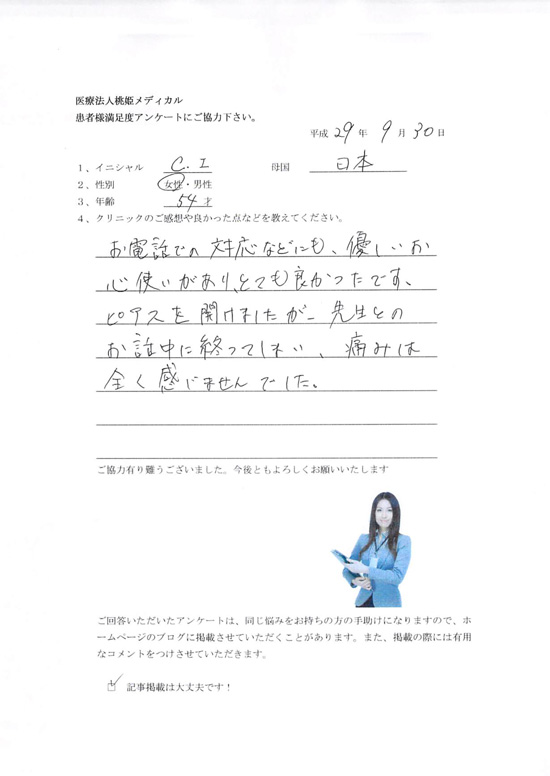 医療法人桃姫メディカル
患者様満足度アンケートにご協力下さい。
平成 29 年 9 月 30 日
1、イニシャル C.I 母国 日本
2、性別 女性・男性
3、年齢 54 才
4、クリニックのご感想や良かった点などを教えてください。
お電話での対応などにも、優しいお
心使いがあり、とても良かったです、
ピアスを開けましたが、先生との
お話中に終ってしまい、痛みは
全く感じませんでした。
ご協力有り難うございました。今後ともよろしくお願いいたします
ご回答いただいたアンケートは、同じ悩みをお持ちの方の手助けになりますので、ホ
ームページのブログに掲載させていただくことがあります。また、掲載の際には有用
なコメントをつけさせていただきます。
☑ 記事掲載は大丈夫です！